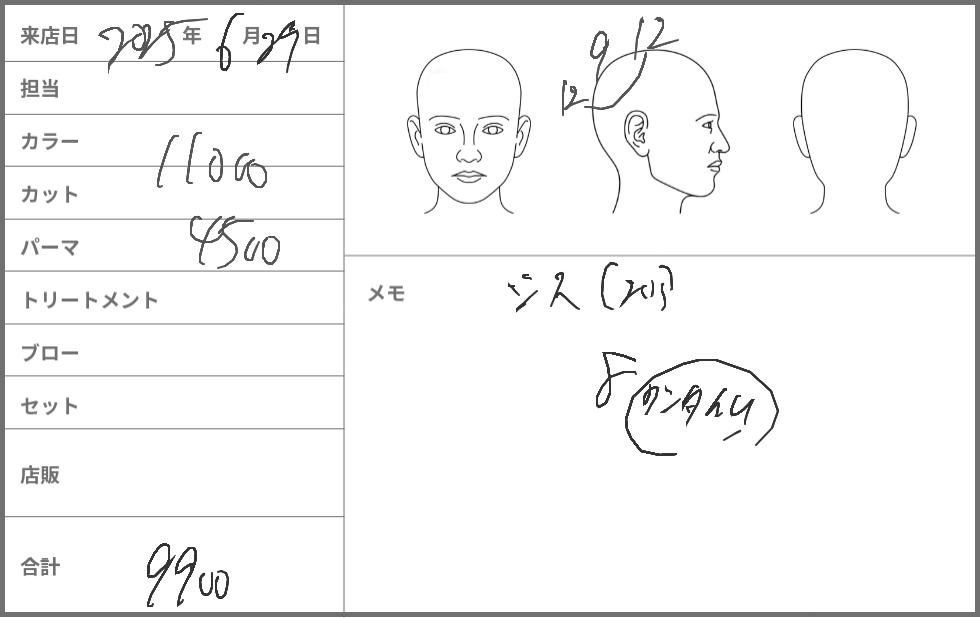 来店日 2025年 6月29日
担当
カラー 11000
カット
パーマ 4500
トリートメント
ブロー
セット
店販
合計 9900
9 12
12
メモ シス